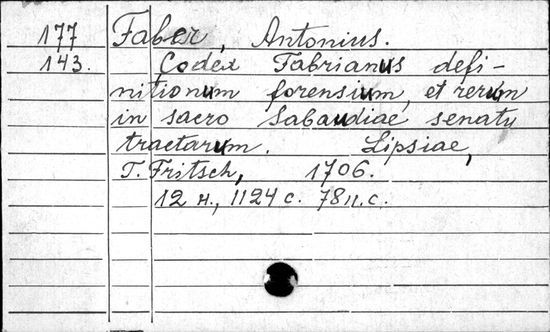 177 Faber, Antonius.
143. Codex Fabrianus defi-
nitionum forensium, et rerum
in sacro Sabaudiae senatu
tractarum. Lipsiae,
T. Fritsch, 1706.
12 н., 1124 с. 78 н.с.